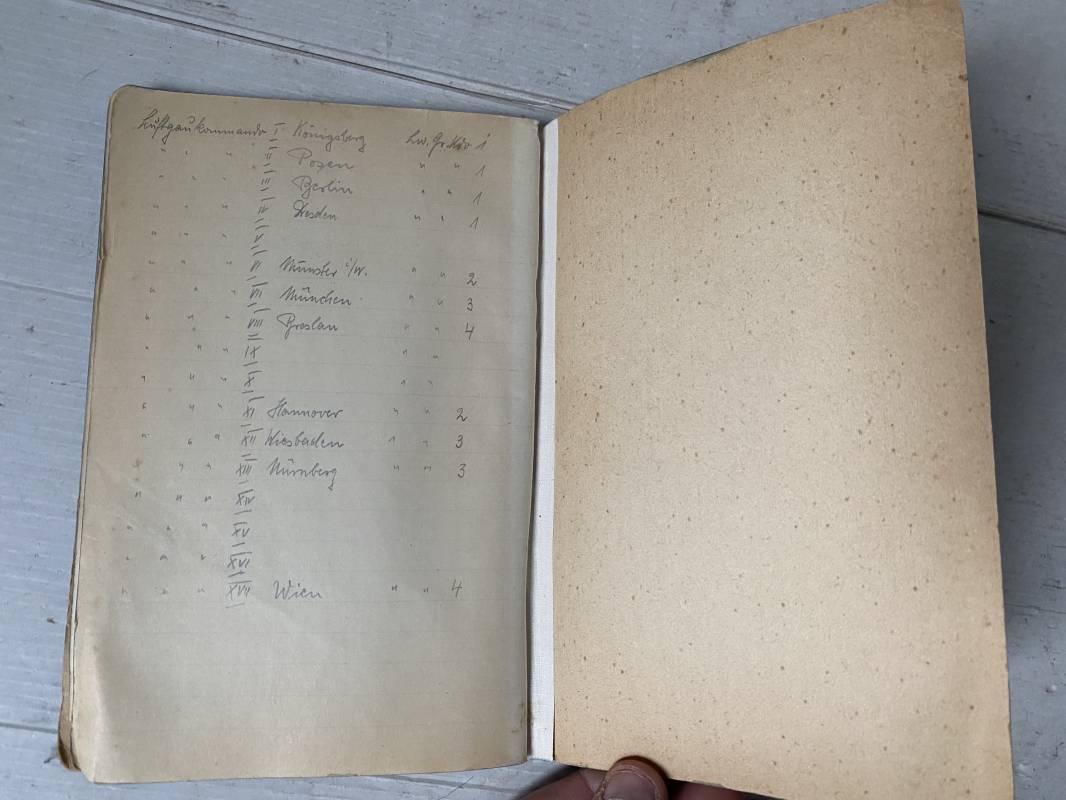 Luftgaukommando I Königsberg Lw. Gr. Kdo 1
" " " II Posen " " 1
" " " III Berlin " " 1
" " " IV Dresden " " 1
" " " V
" " " VI Münster i/W. " " 2
" " " VII München " " 3
" " " VIII Breslau " " 4
" " " IX " "
" " " X " "
" " " XI Hannover " " 2
" " " XII Wiesbaden " " 3
" " " XIII Nürnberg " " 3
" " " XIV
" " " XV
" " " XVI
" " " XVII Wien " " 4